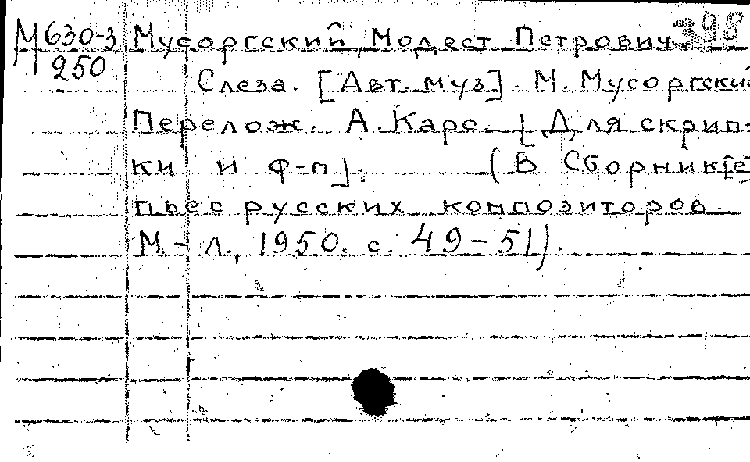 М630-3 Мусоргский, Модест Петрович. 395
250
Слеза. [Авт. муз]. М. Мусоргский
Перелож. А. Карс. [Для скрип-
ки и ф-п]. (В Сборник[е]
пьес русских композиторов.
М.-Л., 1950. с. 49-51).